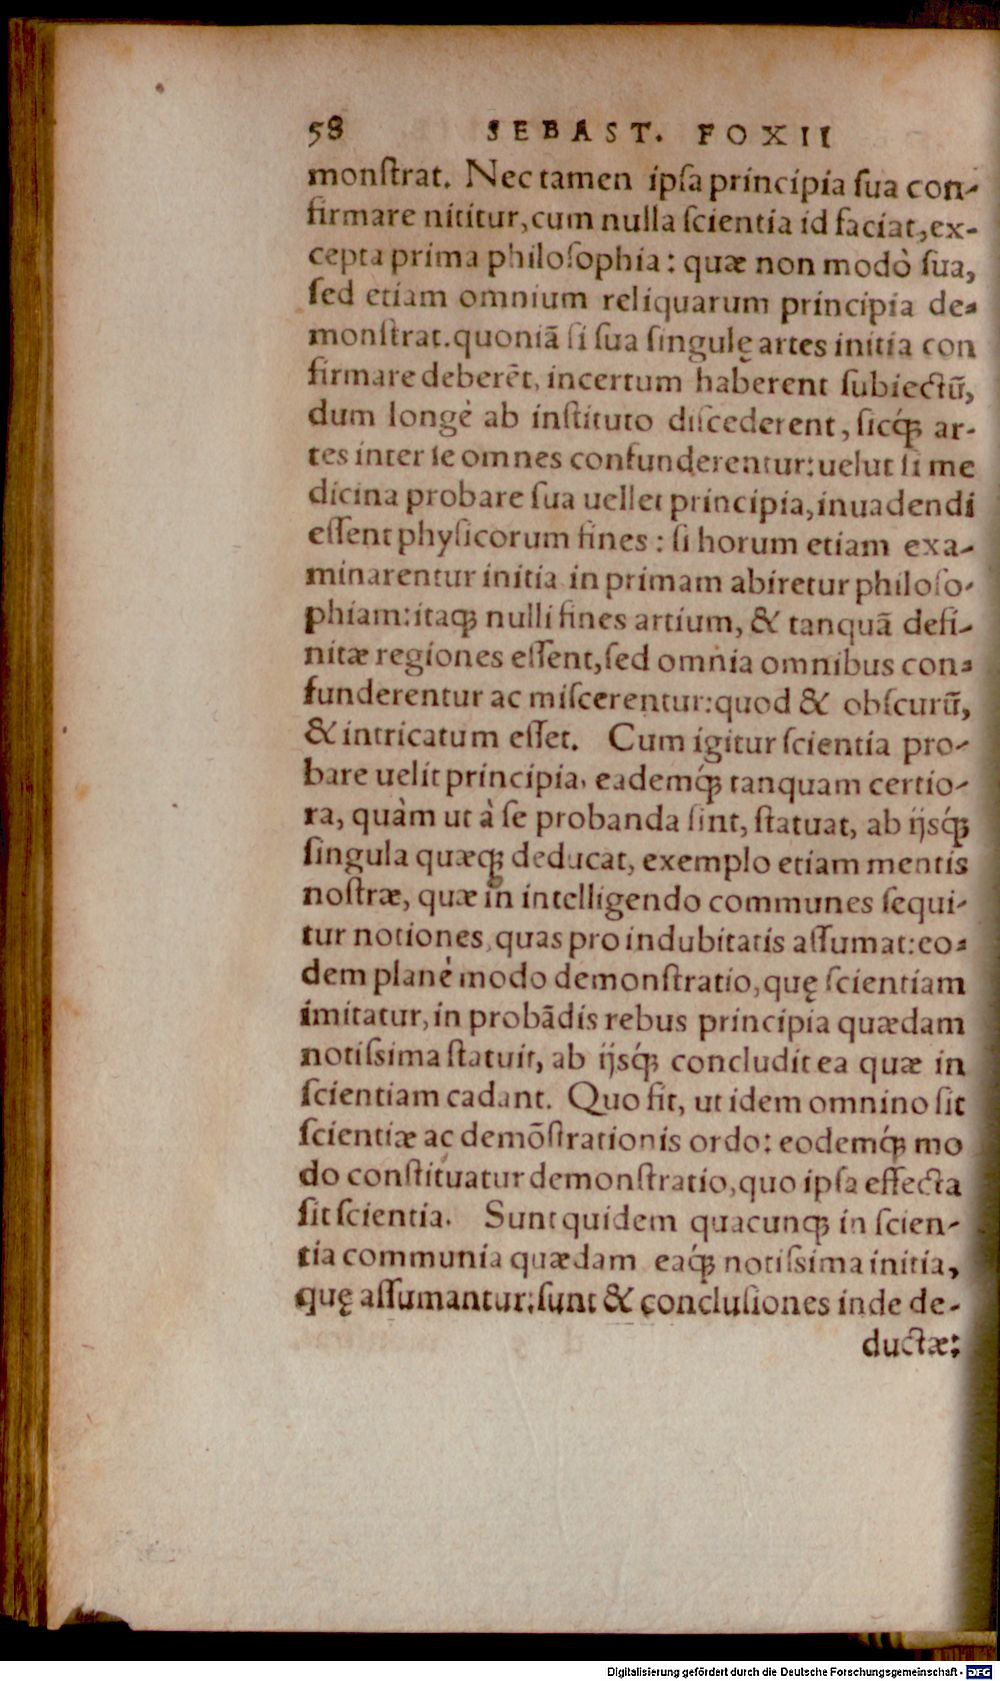 58 SEBAST. FOXII
monſtrat. Nec tamen ipſa principia ſua con-
firmare nititur, cum nulla ſcientia id faciat, ex-
cepta prima philoſophia: quæ non modò ſua,
ſed etiam omnium reliquarum principia de-
monſtrat. quoniã ſi ſua ſingulę artes initia con
firmare deberẽt, incertum haberent ſubiectũ,
dum longè ab inſtituto diſcederent, ſicq́; ar-
tes inter ſe omnes confunderentur: uelut ſi me
dicina probare ſua uellet principia, inuadendi
eſſent phyſicorum fines: ſi horum etiam exa-
minarentur initia in primam abiretur philoſo-
phiam: itaq; nulli fines artium, & tanquã defi-
nitæ regiones eſſent, ſed omnia omnibus con-
funderentur ac miſcerentur: quod & obſcurũ,
& intricatum eſſet. Cum igitur ſcientia pro-
bare uelit principia, eademq́; tanquam certio-
ra, quàm ut à ſe probanda ſint, ſtatuat, ab ijsq́;
ſingula quæq; deducat, exemplo etiam mentis
noſtræ, quæ in intelligendo communes ſequi-
tur notiones, quas pro indubitatis aſſumat: eo-
dem planè modo demonſtratio, quę ſcientiam
imitatur, in probãdis rebus principia quædam
notiſsima ſtatuit, ab ijsq́; concludit ea quæ in
ſcientiam cadant. Quo fit, ut idem omnino ſit
ſcientiæ ac demõſtrationis ordo: eodemq́; mo
do conſtituatur demonſtratio, quo ipſa effecta
ſit ſcientia. Sunt quidem quacunq; in ſcien-
tia communia quædam eaq́; notiſsima initia,
quę aſſumantur: ſunt & concluſiones inde de-
ductæ:
Digitalisierung gefördert durch die Deutsche Forschungsgemeinschaft - DFG